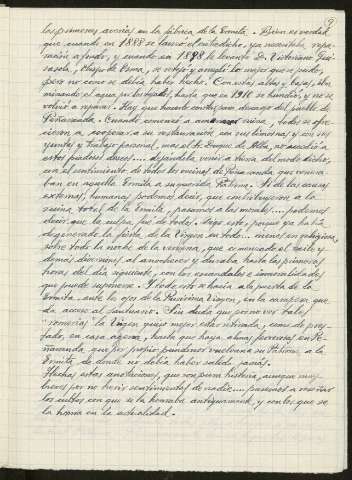 9
las primeras averías en la fábrica de la Ermita. - Bien es verdad
que cuando en 1888 se lanzó el entredicho, ya necesitaba repa-
ración a fondo, y cuando en 1898 lo levantó D. Victoriano Gui-
sasola, Obispo de Osma, se retejó y arregló lo mejor que se pudo,
pero no como se debía haber hecho. Con estas altas y bajas, ibn
minando el agua por los tejados, hasta que en 1910 se hundió y no se
volvió a reparar. - Hay que hacerlo constar en descargo del pueblo de
Peñaranda. Cuando comenzó a amenazar ruina, todos se ofre-
cieron a cooperar a su restauración con sus limosnas y con sus
yuntas y trabajo personal, mas el Sr. Duque de Alba, no accedió a
estos piadosos deseos.... dejándola venir a ruina del modo dicho,
con el sentimiento de todos los vecinos de Peñaranda, que venera-
ban en aquella Ermita a su querida Patrona. Si de las causas
externas, humanas podemos decir, que contribuyeron a la
ruina total de la Ermita, pasamos a las morales.... podemos
decir que la culpa fue de todos. Digo esto, porque ya había
degenerado la fiesta de la Virgen en todo.... menos en religiosa,
sobre todo la noche de la verbena, que comenzado el baile y
demás diversiones al anochecer y duraba hasta las primeras
horas del día siguiente, con los escándalos e inmoralidades
que puede suponerse. Y todo esto se hacía a la puerta de la
Ermita.. ante los ojos de la Purísima Virgen, en la campera que
da acceso al santuario. Sin duda que por no ver tales
"romerías" la Virgen quiso mejor estar retirada, como de pres-
tado, en casa ajena, hasta que haya almas fervorosas en Pe-
ñaranda, que por propio pundonor vuelvan a su Patrona, a la
Ermita de donde no debía haber salido jamás.
Hechas estas anotaciones, que son pura historia, aunque muy
breves por no herir sentimientos de nadie... pasamos a reseñar
los cultos con que se la honraba antiguamente, y con los que se
la honra en la actualidad.